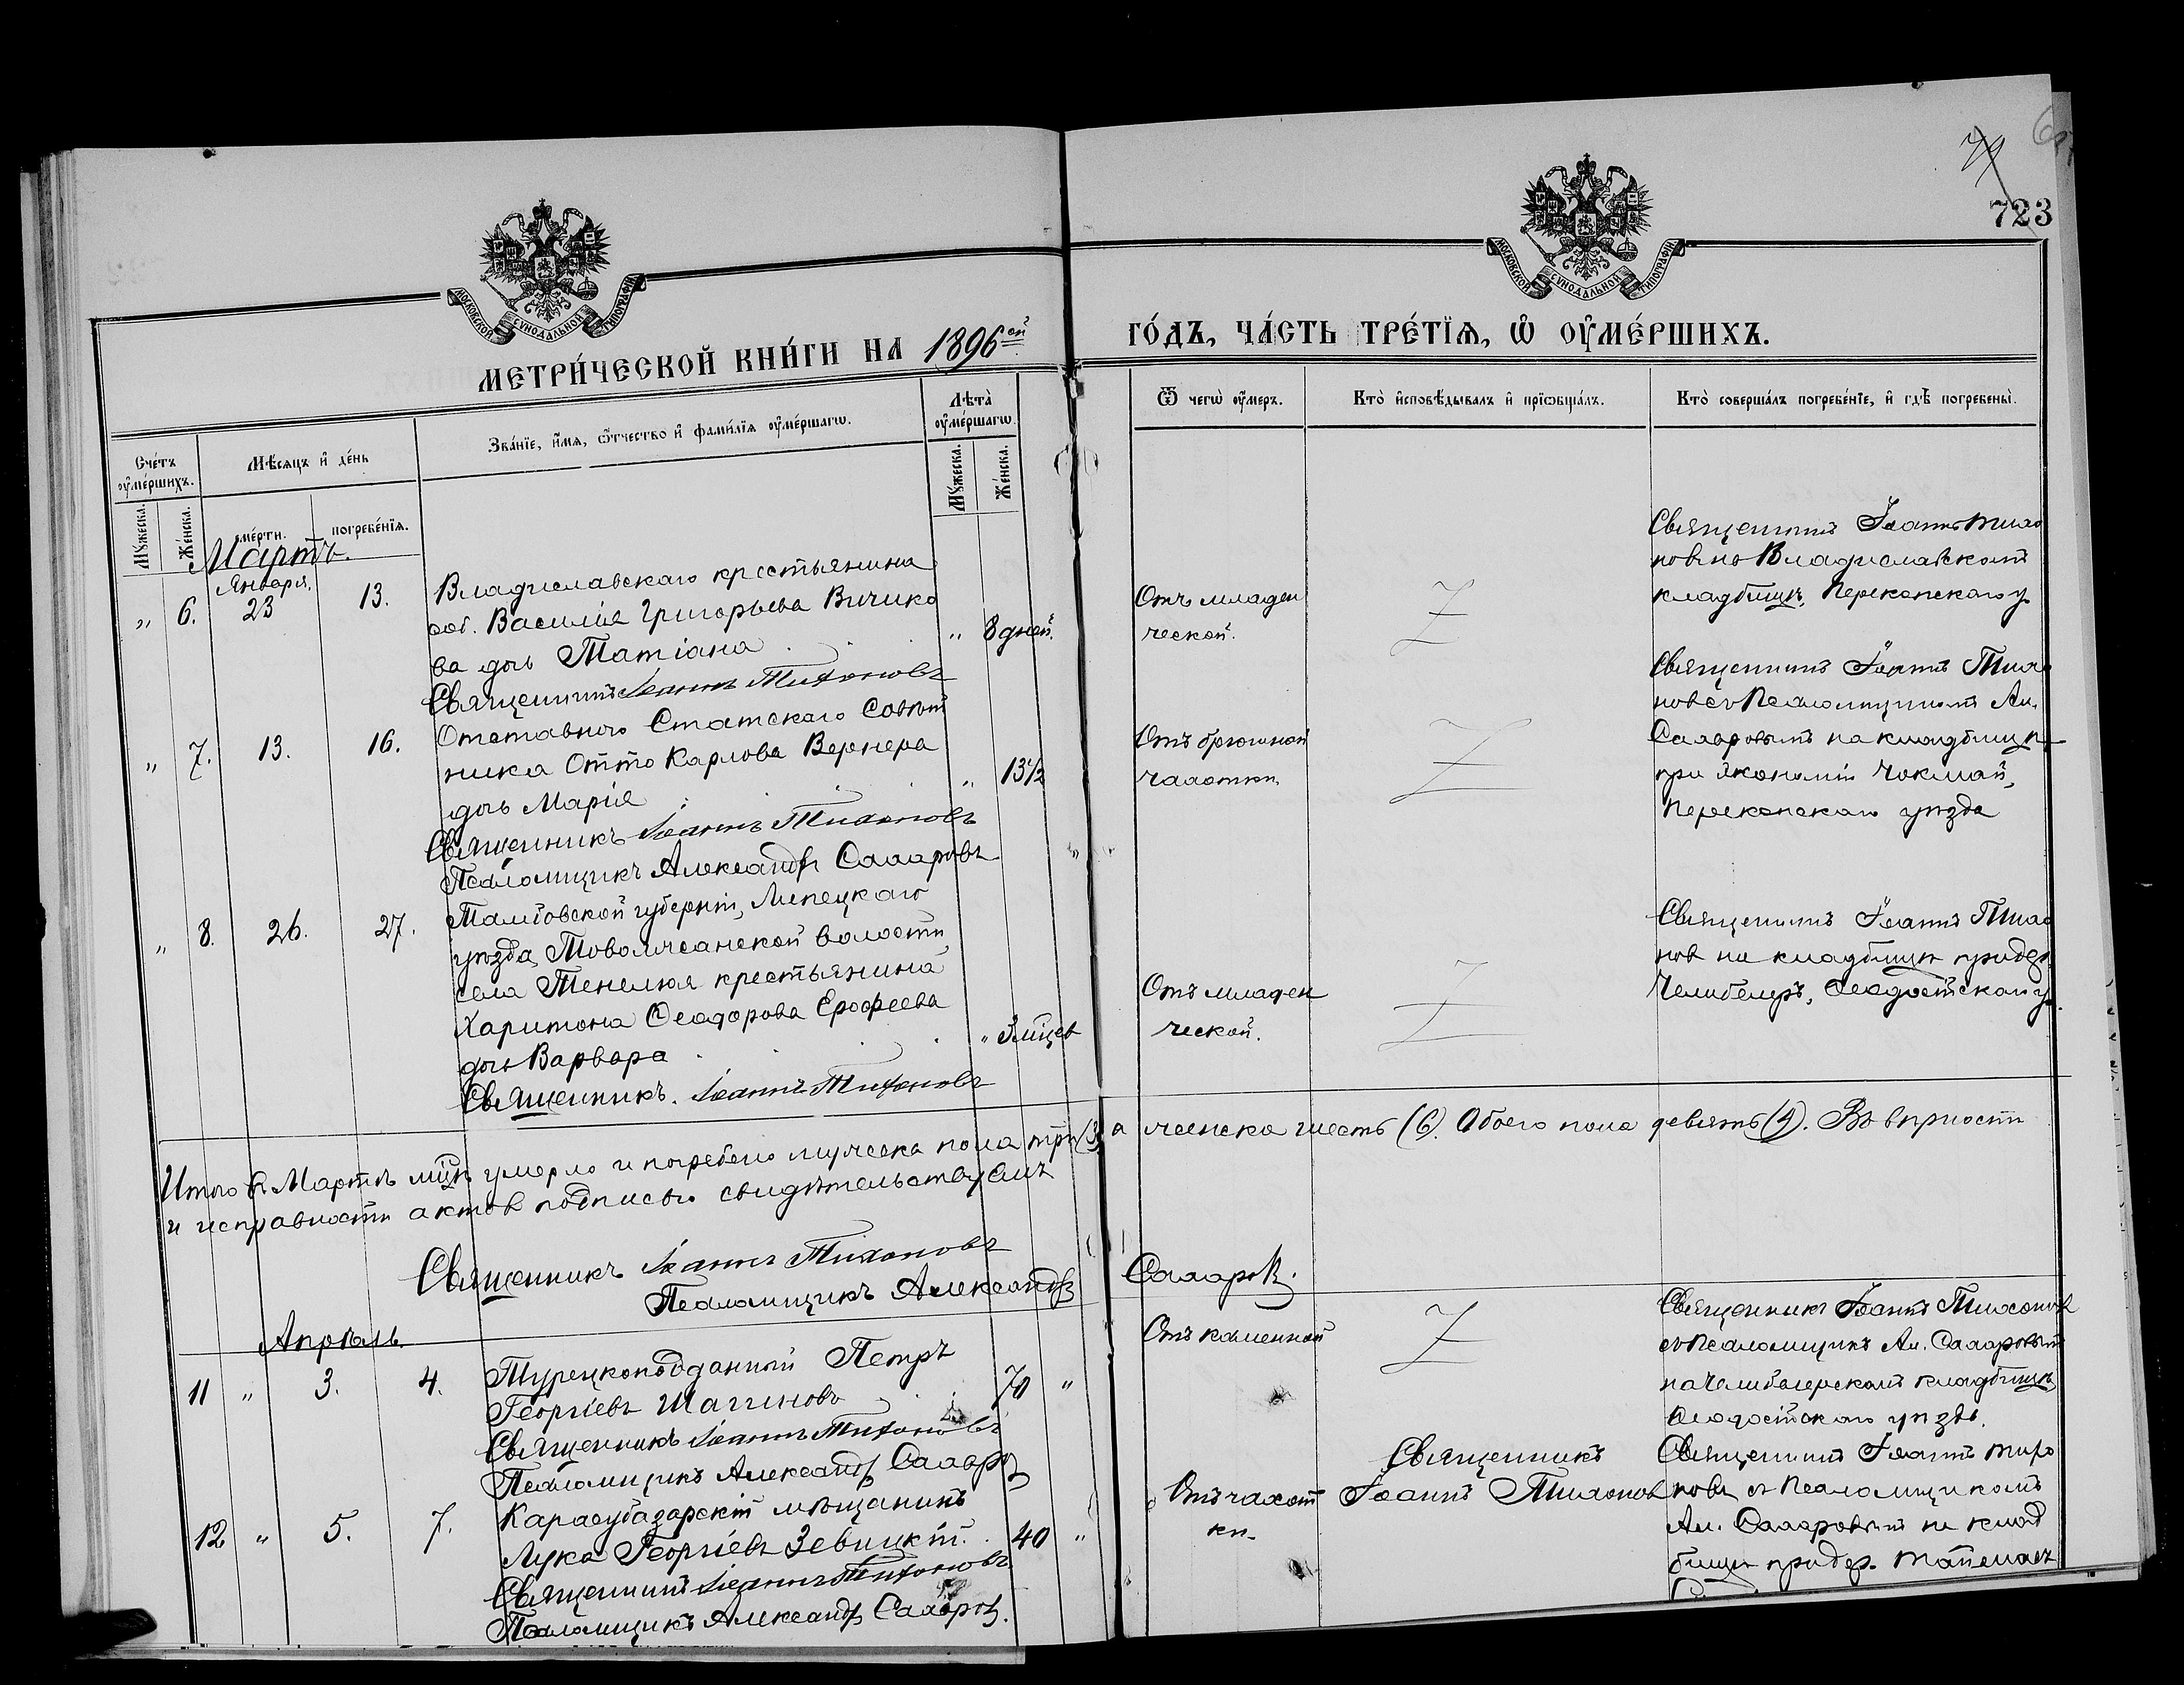 79
723
МОСКОВСКОЙ СѴНОДАЛЬНОЙ ТИПОГРАФІИ
МОСКОВСКОЙ СѴНОДАЛЬНОЙ ТИПОГРАФІИ
МЕТРИ́ЧЕСКОЙ КНИ́ГИ НА 1896ой
ГО́ДЪ, ЧА́СТЬ ТРЕ́ТЇѦ, Ѡ ОУ҆МЕ́РШИХЪ.
Сче́тъ оу҆ме́ршихъ.
Мѣ́сѧцъ и҆ де́нь
Зва́нїе, и҆́мѧ, ѻ҆́тчество и҆ фами́лїѧ оу҆ме́ршагѡ.
Лѣ́та оу҆ме́ршагѡ.
Мꙋ́жеска.
Же́нска.
сме́рти.
погребе́нїѧ.
Мꙋ́жеска.
Же́нска.
Ѿ чегѡ̀ оу҆́меръ.
Кто̀ и҆сповѣ́дывалъ и҆ прїѡбща́лъ.
Кто̀ соверша́лъ погребе́нїе, и҆ гдѣ̀ погребены̀.
Мартъ.
Января.
" 6. 23 13. Владиславскаго крестьянина
соб. Василія Григорьева Вичико
ва дочь Татіана " 8 дней.
Священникъ Іоаннъ Тихоновъ
Отъ младен
ческой.
Священникъ Іоаннъ Тихо
новъ на Владиславскомъ
кладбищѣ, Перекопскаго у
" 7. 13. 16. Отставного Статскаго Совѣт
ника Отто Карлова Вернера
дочь Марія " 13½
Священникъ Іоаннъ Тихоновъ
Псаломщикъ Александръ Сахаровъ
Отъ брюшной
чахотки.
Священникъ Іоаннъ Тихо
новъ съ Псаломщикомъ Ал.
Сахаровымъ на кладбищѣ
при Экономіи Чокмай,
Перекопскаго уѣзда
" 8. 26. 27. Тамбовской губерніи, Липецкаго
уѣзда,
села Тенелюя крестьянина
Харитона Ѳеодорова Ерофеева
дочь Варвара " 3 мцев
Священникъ. Іоаннъ Тихоновъ
Отъ младен
ческой.
Священникъ Іоаннъ Тихо
нов на кладбищѣ при дер.
Ѳеодосійскаго у.
Итого въ Мартѣ мцѣ умерло и погребено мужеска пола три (3) а женска шесть (6). Обоего пола девять (9). Въ вѣрности
и исправности актов подписью свидѣтельствуемъ
Священникъ Іоаннъ Тихоновъ
Псаломщикъ Александръ Сахаровъ.
Апрѣль.
11 " 3. 4. Турецкоподданный Петръ
Георгіевъ Шагиновъ 70 "
Священникъ Іоаннъ Тихоновъ
Псаломщикъ Александръ Сахаровъ
Отъ каменной
Священникъ Іоаннъ Тихонов
съ Псаломщик. Ал. Сахаровым
на кладбищѣ
Ѳеодосійскаго уѣзда.
12 " 5. 7. Карасубазарскій мѣщанинъ
Лука Георгіевъ Зевицкій 40 "
Священникъ Іоаннъ Тихоновъ
Псаломщикъ Александръ Сахаровъ.
Отъ чахот
ки
Священникъ
Іоаннъ Тихонов
Священникъ Іоаннъ Тихо
новъ съ Псаломщикомъ
Ал. Сахаровымъ на клад
бищѣ при дер.